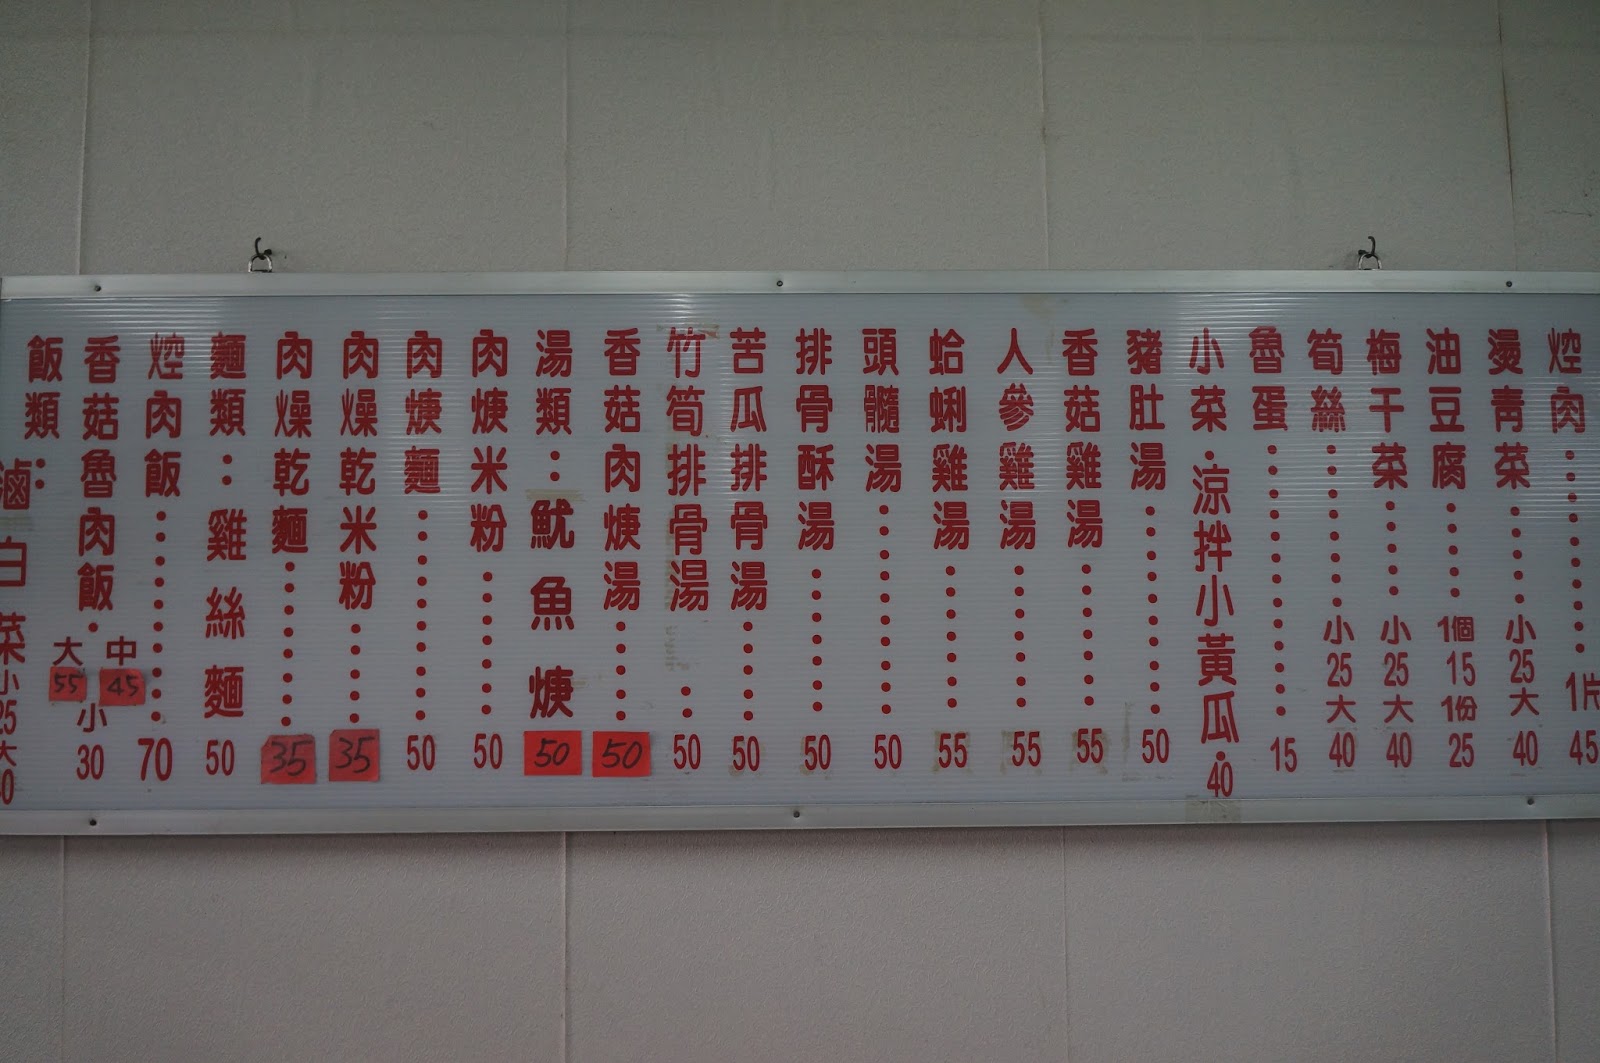 滷白菜小25大
飯類：
香菇魯肉飯．大55 中45 小30
焢肉飯……70
麵類：雞絲麵50
肉燥乾麵……35
肉燥乾米粉……35
肉焿麵……50
肉焿米粉……50
湯類：魷魚焿50
香菇肉焿湯……50
竹筍排骨湯……50
苦瓜排骨湯……50
排骨酥湯……50
頭髓湯……50
蛤蜊雞湯……55
人參雞湯……55
香菇雞湯……55
豬肚湯……50
小菜．涼拌小黃瓜．40
魯蛋……15
筍絲……小25大40
梅干菜……小25大40
油豆腐……1個15 1份25
燙青菜……小25大40
焢肉……1片45